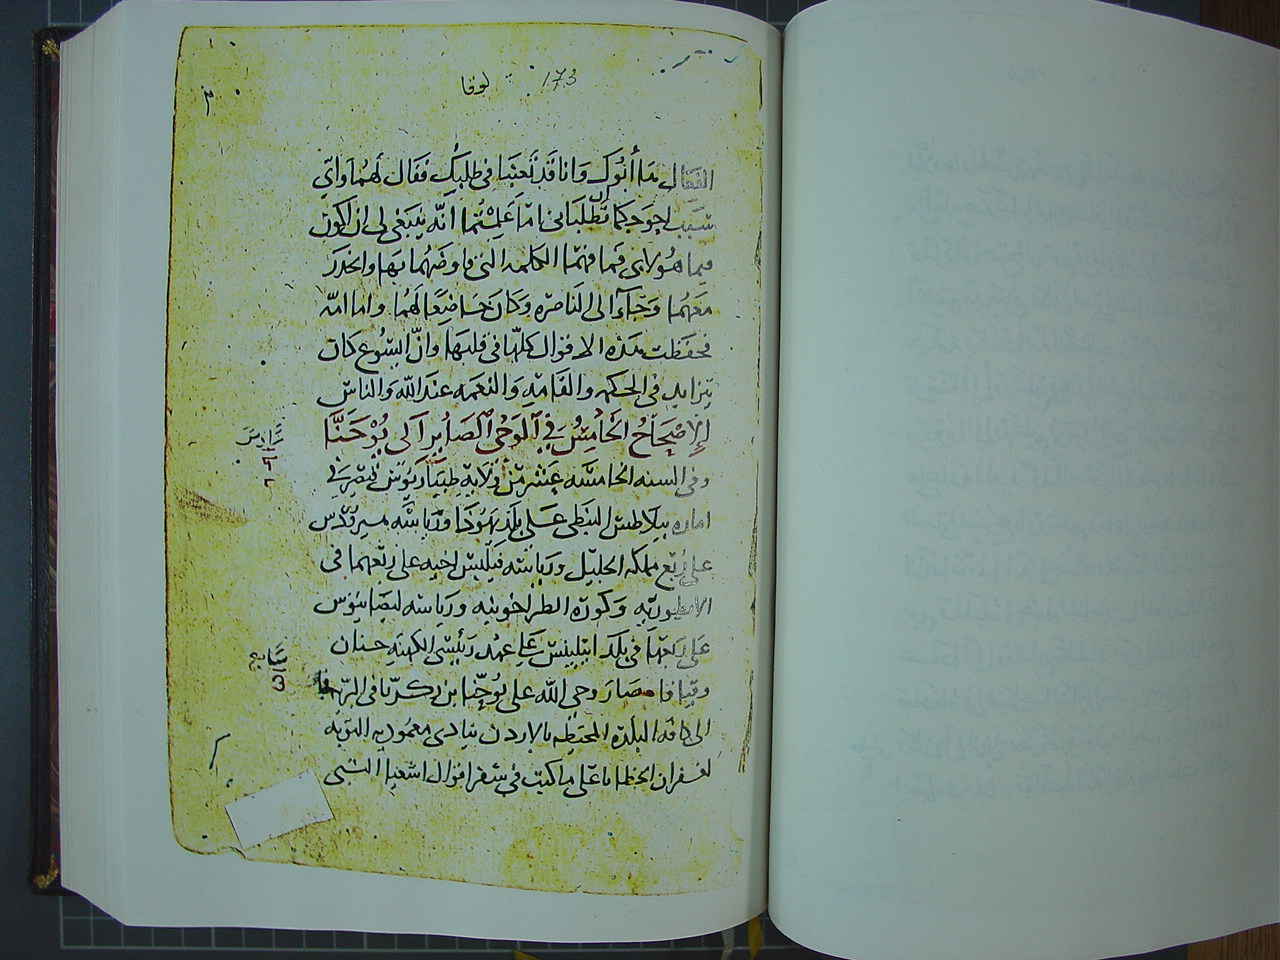 لوقا 173
الفعال هذا أبوك وانا قد تعبنا في طلبك فقال لهما واي
سبب احوجكما تطلباني اما علمتما انه ينبغي لي ان اكون
فيما هولاي فما فهما الكلمه التي فاوضهما بها وانحدر
معهما وجاء الى الناصره وكان خاضعا لهما واما امه
فحفظت هذه الاقوال كلها في قلبها وان ايسوع كان
يتزايد في الحكمه والقامه والنعمه عند الله والناس
الإصحاح الخامس في الوحي الصاير الى يوحنا
وفي السنه الخامسه عشر من ولاية طيباريوس قيصر في
اماره بيلاطس النبطي على بلد يهوذا ورياسه هيرودس
على ربع مملكه الجليل ورياسه فيلبس اخيه على ربعهما في
الايطوريه وكورة الطراخونيه ورياسه ليصانيوس
على ربعها في بلد ابيلينس على عهد رئيسي الكهنه حنان
وقيافا فصار وحي الله على يوحنا بن زكريا في البرية فا
الى كافه البلدة المحيطه بالاردن ينادي معموديه التوبه
لغفران الخطايا على ما كتب في سفر اقوال اشعيا النبي
سادس
سابع